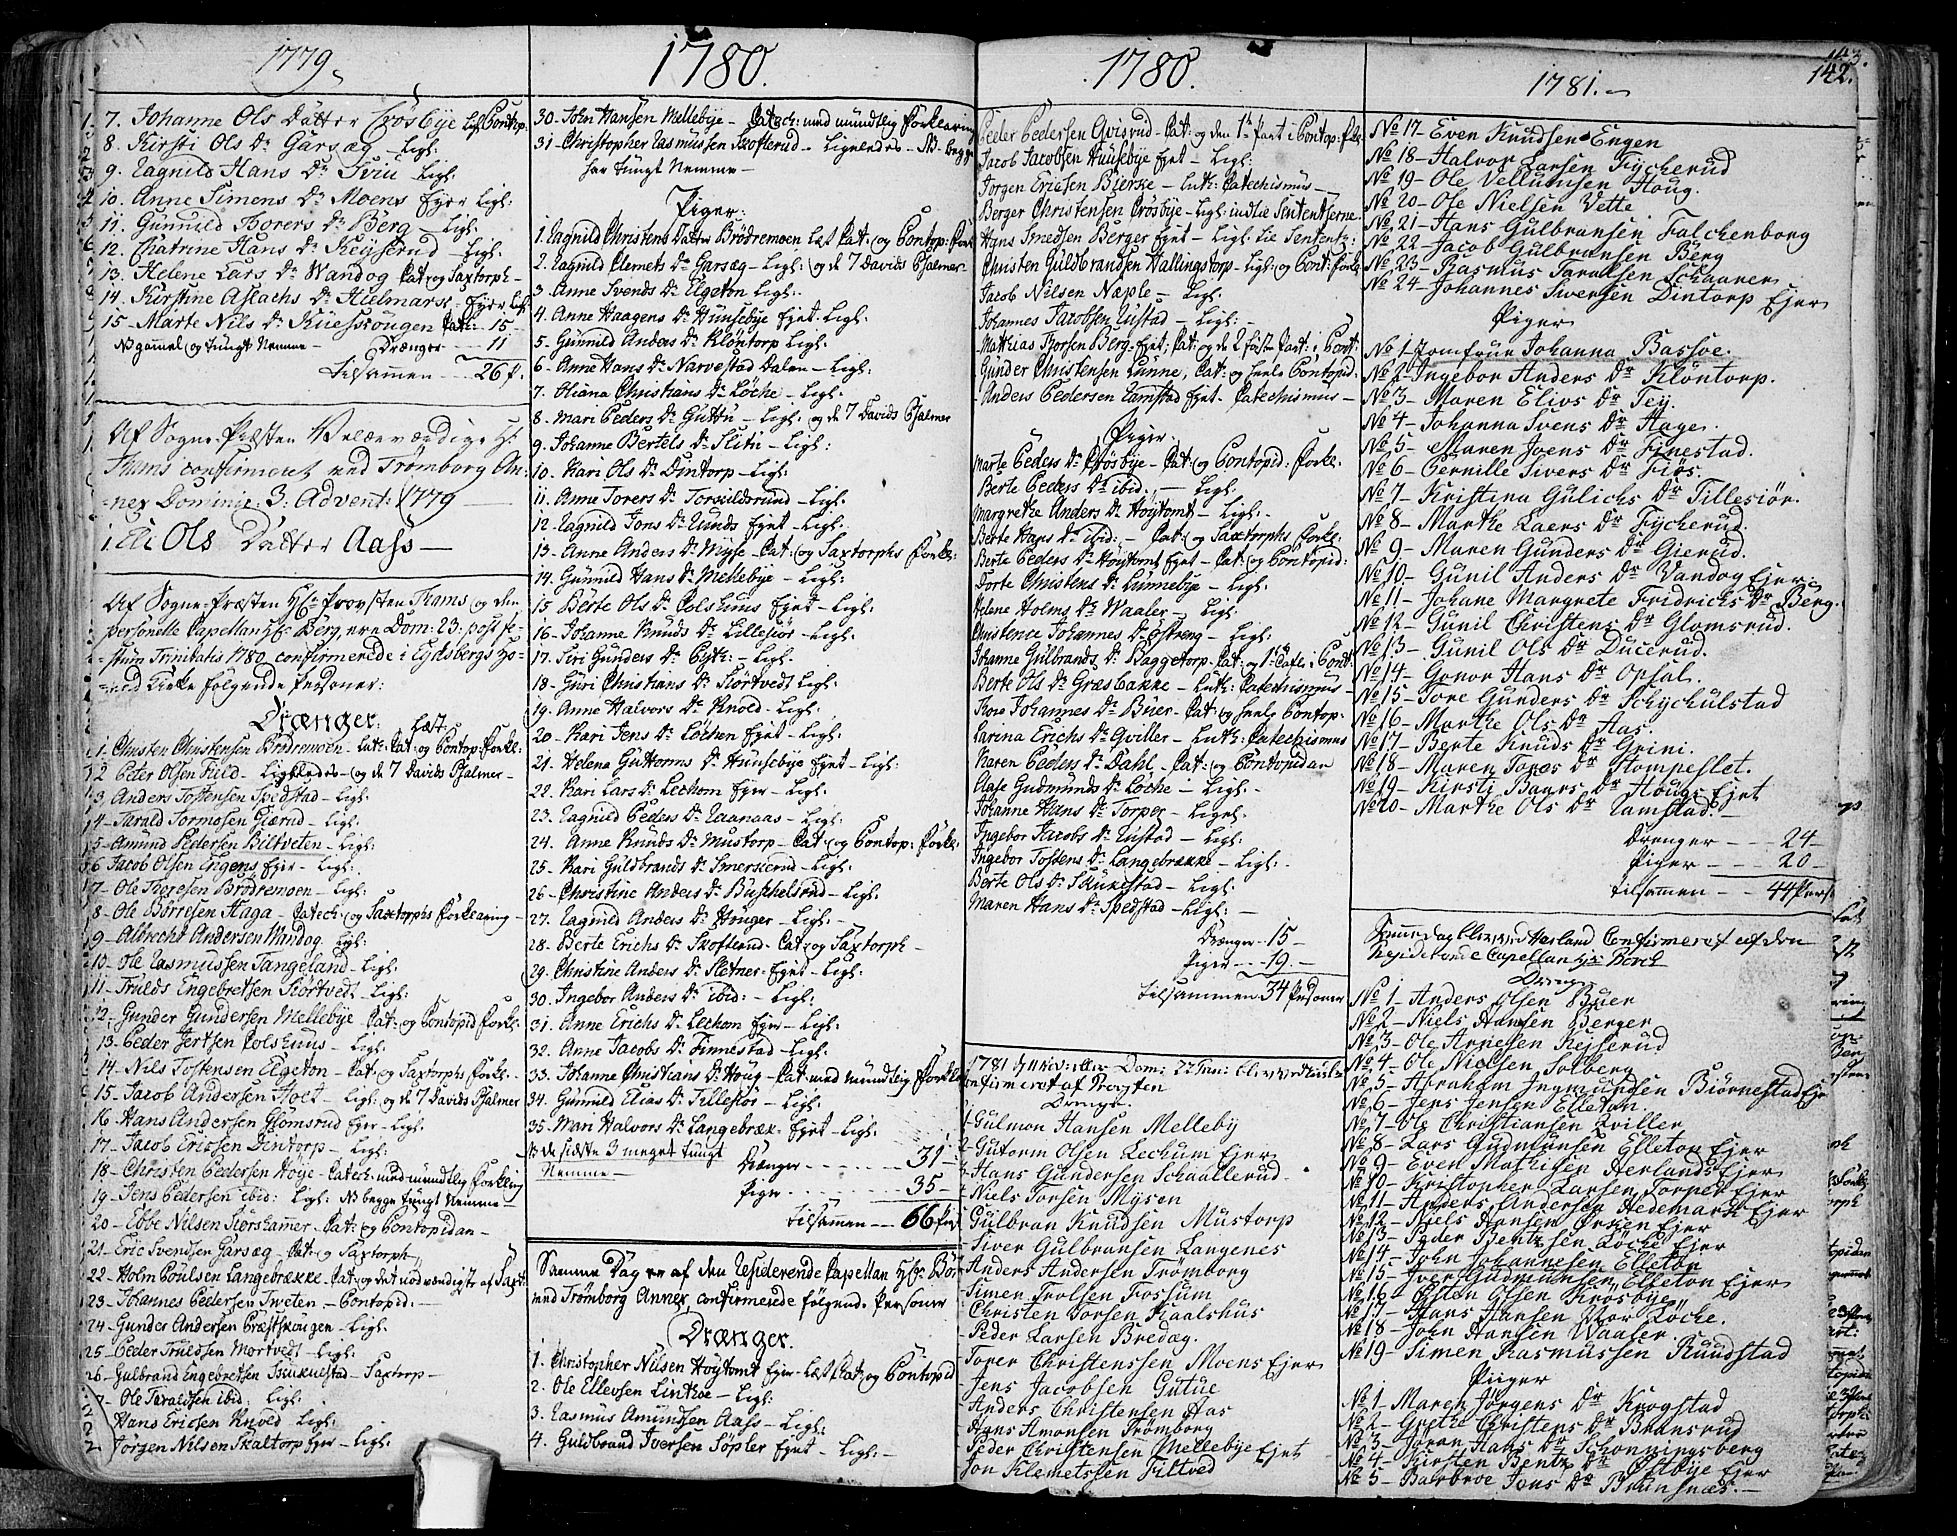 1779
7. Johanne Ols Datter Crösbye Ligl: Pontop:
8. Kirsti Ols Dr Garsæg – Ligl:
9. Ragnild Hans Dr Siviü – Ligl:
10. Anne Simens Dr Moens Ejer Ligl:
11. Gunnild Torers Dr Berg – Ligl:
12. Chatrine Hans Dr Keyserud – Ligl:
13. Helene Lars Dr Wandog Cat: og Saxtorph –
14. Kirstine Aslachs Dr Hielmark – Ejer Ligl:
15. Marte Nils Dr Küesskougen Cat: – 15 –
NB gammel og tungt Nemme – Drænger --- 11
Tilsammen --- 26 P.
Af Sogne-Præsten Velærværdige Hr:
Thams confirmeret ved Trömborg An-
=nex Dominic: 3. Advent: 1779 —
1. Eli Ols Datter Aass —
Af Sogne-Præsten Hr: Provsten Thams og den
personelle Capellan Hr: Berg, ere Dom: 23: post fe-
=stum Trinitatis 1780 confirmerede i Eydsbergs Ho-
=ved Kirke følgende Personer:
Drænger: Læst
1. Christen Christensen Brödremoen – Luth: Cat: og Pontop: Forkl:
2. Peter Olsen Field – Ligeledes – og de 7 Davids Psalmer –
3. Anders Tostensen Spedstad – Ligl:
4. Tarald Tormosen Giærud – Ligl:
5. Amund Pedersen Biltveten – Ligl:
6. Jacob Olsen Engens Ejer – Ligl:
7. Ole Theresen Brödremoen – Ligl:
8. Ole Börresen Haga – Catech: og Saxtorphs Forklaring –
9. Albrecht Andersen Wandog Ligl:
10. Ole Rasmussen Tangeland – Ligl:
11. Truels Engebretsen Skörtvedt – Ligl:
12. Gunder Gundersen Mellebye – Cat: og Pontopid Forkl:
13. Peder Jertsen Colshuus – Ligl:
14. Nils Tostensen Elgeton – Cat: og Saxtorphs Forkl:
15. Jacob Andersen Hoel – Ligl: og de 7 Davids Psalmer
16. Hans Andersen Glomsrud Ejer – Ligl:
17. Jacob Ericsen Dintorp – Ligl:
18. Christen Pedersen Höye – Catech: med mundtlig Forklaring
19. Jens Pedersen ibid: Ligl: NB begge tungt Nemme –
20. Ebbe Nilsen Skörshammer – Cat: og Pontopidan –
21. Eric Svendsen Garsæg – Cat: og Saxtorph
22. Holm Poulsen Langebrække – Cat: og det nödvendigste af Saxt:
23. Johannes Pedersen Tweten – Pontopid: –
24. Gunder Andersen Præstskougen – Ligl:
25. Peder Truelssen Mortvedt – Ligl:
26. Gulbrand Engebretsen Skukelstad – Saxtorp –
7. Ole Taraldsen ibid: Ligl:
Hans Ericsen Knold Ligl:
Jörgen Nilsen Skaltorp Ejer – Ligl:
1780.
30. John Hansen Mellebye – Catech: med mundtlig Forklaring
31. Christopher Rasmussen Skofterud – Ligeledes – NB. begge
har tungt Nemme –
Piger:
1. Ragnild Christens Datter Brödremoen Læst Cat: og Pontop: Forkl:
2. Ragnild Clemets Dr Garsæg – Ligl: og de 7 Davids Psalmer
3. Anne Svends Dr Elgeton Ligl:
4. Anne Haagens Dr Hunsebye Ejet – Ligl:
5. Gunnild Anders Dr Klöntorp Ligl:
6. Anne Hans Dr Narvestad Dalen – Ligl:
7. Oliana Christians Dr Löche – Ligl:
8. Mari Peders Dr Guttu – Ligl: og de 7 Davids Psalmer
9. Johanne Bertels Dr Slitu – Ligl:
10. Kari Ols Dr Dintorp – Ligl:
11. Anne Torers Dr Torsildsrund – Ligl:
12. Ragnild Jons Dr Runds Ejet – Ligl:
13. Anne Anders Dr Myse – Cat: og Saxtorphs Forkl:
14. Gunnild Hans Dr Mellebye – Ligl:
15. Berte Ols Dr Colshuus Ejet – Ligl:
16. Johanne Knuds Dr Lillesiör – Ligl:
17. Siri Gunders Dr Byth: – Ligl:
18. Guri Christians Dr Skörtvedt Ligl:
19. Anne Halvors Dr Knold – Ligl:
20. Kari Jens Dr Löchen Ejet – Ligl:
21. Helena Guttorms Dr Hunsebye Ejet – Ligl:
22. Kari Lars Dr Lechom Ejer – Ligl:
23. Ragnild Peders Dr Raanaas – Ligl:
24. Anne Knuds Dr Mustorp – Cat: og Pontop: Forkl:
25. Kari Guldbrands Dr Smerskerud – Ligl:
26. Christine Anders Dr Buschelsrud – Ligl:
27. Ragnild Anders Dr Houger – Ligl: –
28. Berte Erichs Dr Skofterud – Cat: og Saxtorph –
29. Christine Anders Dr Sletner – Ejet – Ligl:
30. Ingebor Anders Dr ibid: – Ligl:
31. Anne Erichs Dr Lechom Ejer – Ligl:
32. Anne Jacobs Dr Finnestad – Ligl:
33. Johanne Christians Dr Houg – Cat: med mundtlig Forkl:
34. Gunnild Elias Dr Tillesiör – Ligl:
35. Mari Halvors Dr Langebræk – Ejet – Ligl:
NB de sidste 3 meget tungt
Nemme – Drænger ------ 31 –
Piger ------ 35 –
tilsammen --- 66 Pers
Samme Dag er af den Residerende Capellan Hr: Bör
ved Trömborg Annex confirmerede følgend: Personer
Drænger.
1. Christopher Nilsen Höytomt Ejer – Læst Cat: og Pontopid
2. Ole Ellevsen Linkoe – Ligl:
3. Rasmus Amundsen Aass – Ligl:
4. Guldbrand Iversen Sopler Ejet – Ligl: –
1780.
Peder Pedersen Qvisrud – Cat: og den 1te Part i Pontop: Forkl:
Jacob Jacobsen Huusebye Ejet – Ligl:
Jörgen Ericsen Bierke – Luth: Catechismus –
Berger Christensen Crösbye – Ligl: indtil Sententserne
Hans Smedsen Berger Ejet – Ligl: til Sententz:
Christen Guldbrandsen Hallingstorp – Ligl: og Pont: Forkl:
Jacob Nilsen Næple – Ligl:
Johannes Jacobsen Rustad – Ligl: –
Mathias Tjorsen Berg – Ejet; Cat: og de 2 første Part: i Pont:
Gunder Christensen Lunne, Cat: og heele Pontopid:
Anders Pedersen Ramstad Ejet – Catechismus –
Piger.
Marte Peders Dr Crösbye – Cat: og Pontopid: Forkl:
Berte Peders Dr ibid: – Ligl:
Margrethe Anders Dr Höytomt – Ligl:
Berte Hans Dr ibid: – Cat: og Saxtorphs Forkl:
Berte Peders Dr Höytomt Ejet – Cat: og Pontopid:
Dorte Christens Dr Lunnebye – Ligl:
Helene Holms Dr Waaler – Ligl:
Christence Johannes Dr Östreng – Ligl:
Johanne Gulbrands Dr Baggetorp – Cat: og 1te Part i Pont:
Berte Ols Dr Græsbakke – Luth: Catechismus –
Tore Johannes Dr Buer – Cat: og heele Pontop:
Carina Erichs Dr Qviller – Luth: Catechismus
Karen Peders Dr Dahl – Cat: og Pontopidan
Aase Gudmunds Dr Löche – Ligl:
Johanne Hans Dr Torper – Ligel:
Ingebor Jacobs Dr Rustad – Ligl:
Ingebor Tostens Dr Langebrække – Ligl:
Berte Ols Dr Skukelstad – Ligl:
Maren Hans Dr Spedstad – Ligl: –
Drænger – 15 –
Piger --- 19. –
tilsammen 34 Personer
1781 Dom: 22 Trin: blev ved
Confirmeret af Provsten
Drenge
Gulmon Hansen Melleby
Gutorm Olsen Lechum Ejer
Hans Gundersen Schaallerud
Niels Torsen Mysen
Gulbran Knudsen Mustorp
Siver Gulbransen Langenes
Anders Andersen Trömborg
Simen Trolsen Fossum
Christen Torsen Kaalshus
Peder Larsen Bredag.
Torer Christenssen Moens Ejer
Jens Jacobsen Gutue
Anders Christensen Has
Hans Amonsen Tromborg
Peder Christensen Mellebye Ejet
Jon Klemetssen Tiltved
1781. –
143.
142.
No 17 – Even Knudsen Engen
No 18 – Halvor Larsen Fycherud
No 19 – Ole Vellumsen Houg.
No 20 – Ole Nielsen Vette
No 21 – Hans Gulbransen Falchenborg
No 22 – Jacob Gulbransen Berg
No 23 – Rasmus Taralsen Schaaren
No 24 – Johannes Swensen Dintorp Ejer
Piger
No 1 – Jomfrue Johanna Bassøe.
No 2 – Ingebor Anders Dr Klöntorp.
No 3 – Maren Elivs Dr Tej.
No 4 – Johanna Svens Dr Hage.
No 5 – Maren Joens Dr Finestad.
No 6 – Pernille Sivers Dr Fiös.
No 7 – Kristina Gulichs Dr Tillesiör.
No 8 – Marthe Laers Dr Fycherud.
No 9 – Maren Gunders Dr Gierud.
No 10 – Gunil Anders Dr Vandog Ejer
No 11 – Johane Margrete Fridrichs Dr Berg.
No 12 – Gunil Christens Dr Glomsrud.
No 13 – Gunil Ols Dr Ducerud.
No 14 – Gonor Hans Dr Opsal.
No 15 – Tore Gunders Dr Schychulstad
No 16 – Marthe Ols Dr Aas.
No 17 – Berte Knuds Dr Grini.
No 18 – Maren Tores Dr Stompeslet.
No 19 – Kirsti Baars Dr Hougs Ejet
No 20 – Marthe Ols Dr Ramstad. –
Drenger --- 24 –
Piger --- 20 –
tilsammen --- 44 Pers
Samme dag blev ved Herland Confirmeret af den
Residerende Capellan Hr: Borch
Drenge
No 1 – Anders Olsen Buer
No 2 – Niels Hansen Berger
No 3 – Ole Arnesen Kejserud
No 4 – Ole Nielsen Solberg
No 5 – Abraham Ingmundsen Biörnestad Ejer
No 6 – Jens Jensen Elleton
No 7 – Ole Christiansen Qviller
No 8 – Lars Gudmunsen Elleton Ejer
No 9 – Even Mathisen Herlands Ejer
No 10 – Kristopher Larsen Torper Ejer
No 11 – Anders Andersen Hedemark Ejer
No 12 – Niels Hansen Örsken Ejer
No 13 – Peder Bentzsen Löche Ejer
No 14 – John Johannesen Elleton
No 15 – Iver Gudmunsen Elleton Ejer
No 16 – Östen Olsen Krösbye
No 17 – Hans Hansen Vor Löche.
No 18 – John Hansen Waaler.
No 19 – Simen Rasmussen Ruudstad
Piiger
No 1 – Maren Jörgens Dr Krogstad
No 2 – Grethe Christens Dr Bransrud
No 3 – Joran Hans Dr Schonningsberg
No 4 – Kirsten Bentz Dr Östbye Ejer
No 5 – Barbroe Jons Dr Brunsnæs. –